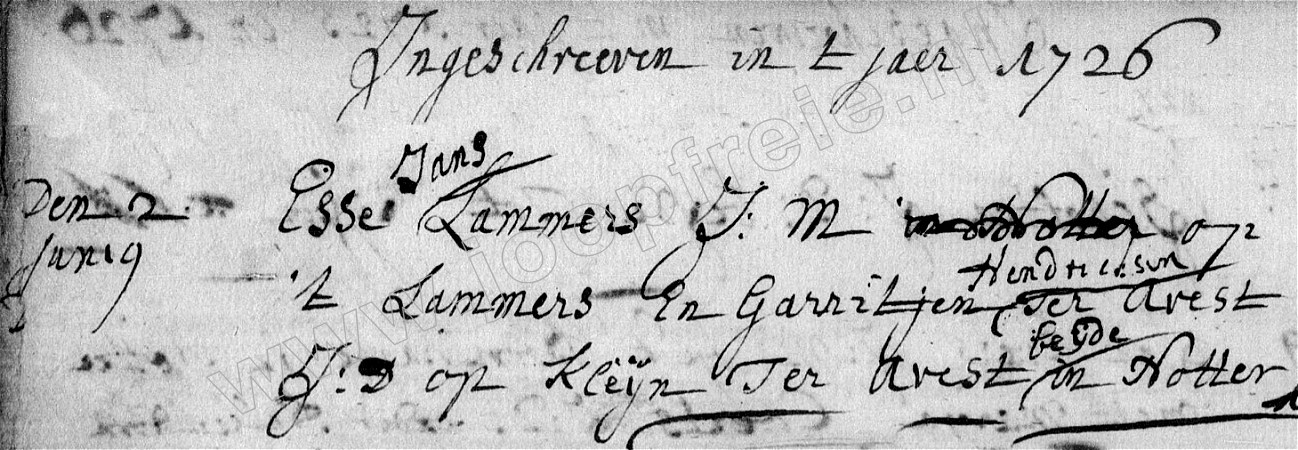 Ingeschreeven in t jaer 1726
Jans
Den 2 Esse Lammers J: M in Notter op
Junij
Hendricksen
't Lammers En Garritjen Ter Avest
beijde
J: D op Kleÿn Ter Avest in Notter
www.loopfreie.nl